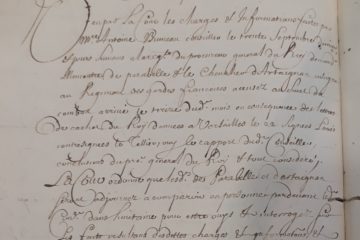 Veu par la Cour les charges et Informations faites par
Mre Antoine Bruneau conseiller le trente Septembre dernier
et jours suivans a la req.te du procureur general du Roy demandeur
allencontre de parabelle et le Chevalier d'artaignan
au Regiment des gardes francoises accusez au sujet du
combat arrivé le treize dud. mois en consequence des lettres
de cachet du Roy données a Versailles le 22 signées Louis
contresignées le Tellier, ouy le rapport dud. Conseiller,
conclusions du pr. general du Roy et tout consideré
La Cour ordonne que lesd. de Parabelle et d'artaignan
seront adjournez a comparoir en personne pardevant le
Con.er dans huitaine pour estre ouys et interrogez sur
les faits resultans desdites charges et informations et